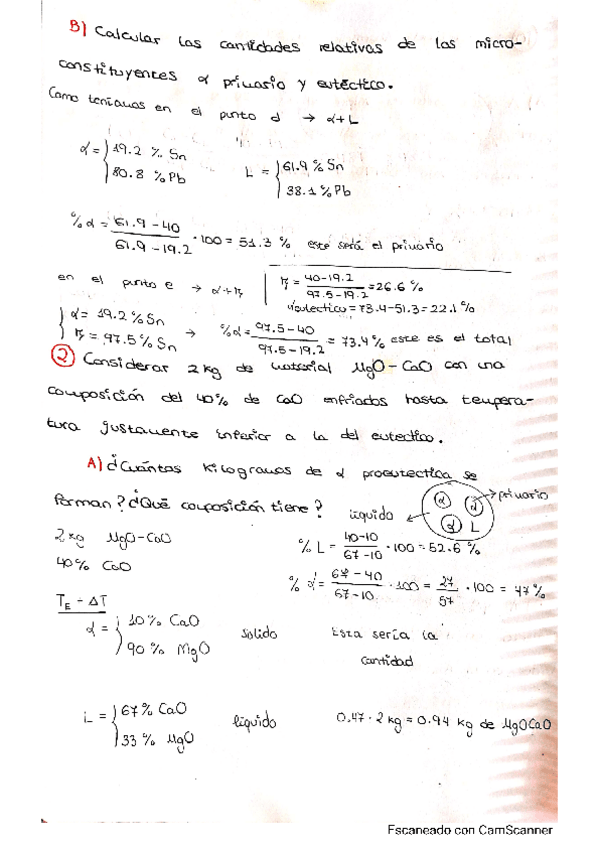 B) Calcular las cantidades relativas de los micro-
constituyentes α primario y eutéctico.
Como teníamos en el punto d → α+L
α = 19.2 % Sn
80.8 % Pb
L = 61.9 % Sn
38.1 % Pb
% α = 61.9 - 40 / 61.9 - 19.2 · 100 = 51.3 % este será el primario
en el punto e → α+β
β = 40-19.2 / 97.5-19.2 = 26.6 %
αeutectico = 73.4-51.3 = 22.1 %
α = 19.2 % Sn
β = 97.5 % Sn → % α = 97.5-40 / 97.5-19.2 = 73.4 % este es el total
2) Considerar 2 kg de material MgO-CaO con una
composición del 40% de CaO enfriados hasta tempera-
tura justamente inferior a la del eutectico.
A) ¿Cuántos kilogramos de α proeutectica se
forman? ¿Qué composición tiene?
líquido α α α L primario
2 kg MgO-CaO
% L = 40-10 / 67-10 · 100 = 52.6 %
40% CaO
% α = 67-40 / 67-10 · 100 = 27 / 57 · 100 = 47 %
TE - ΔT
α = 10% CaO
90% MgO
sólido
Esta sería la
cantidad
L = 67% CaO
33 % MgO
líquido
0.47 · 2 kg = 0.94 kg de MgOCaO
Escaneado con CamScanner